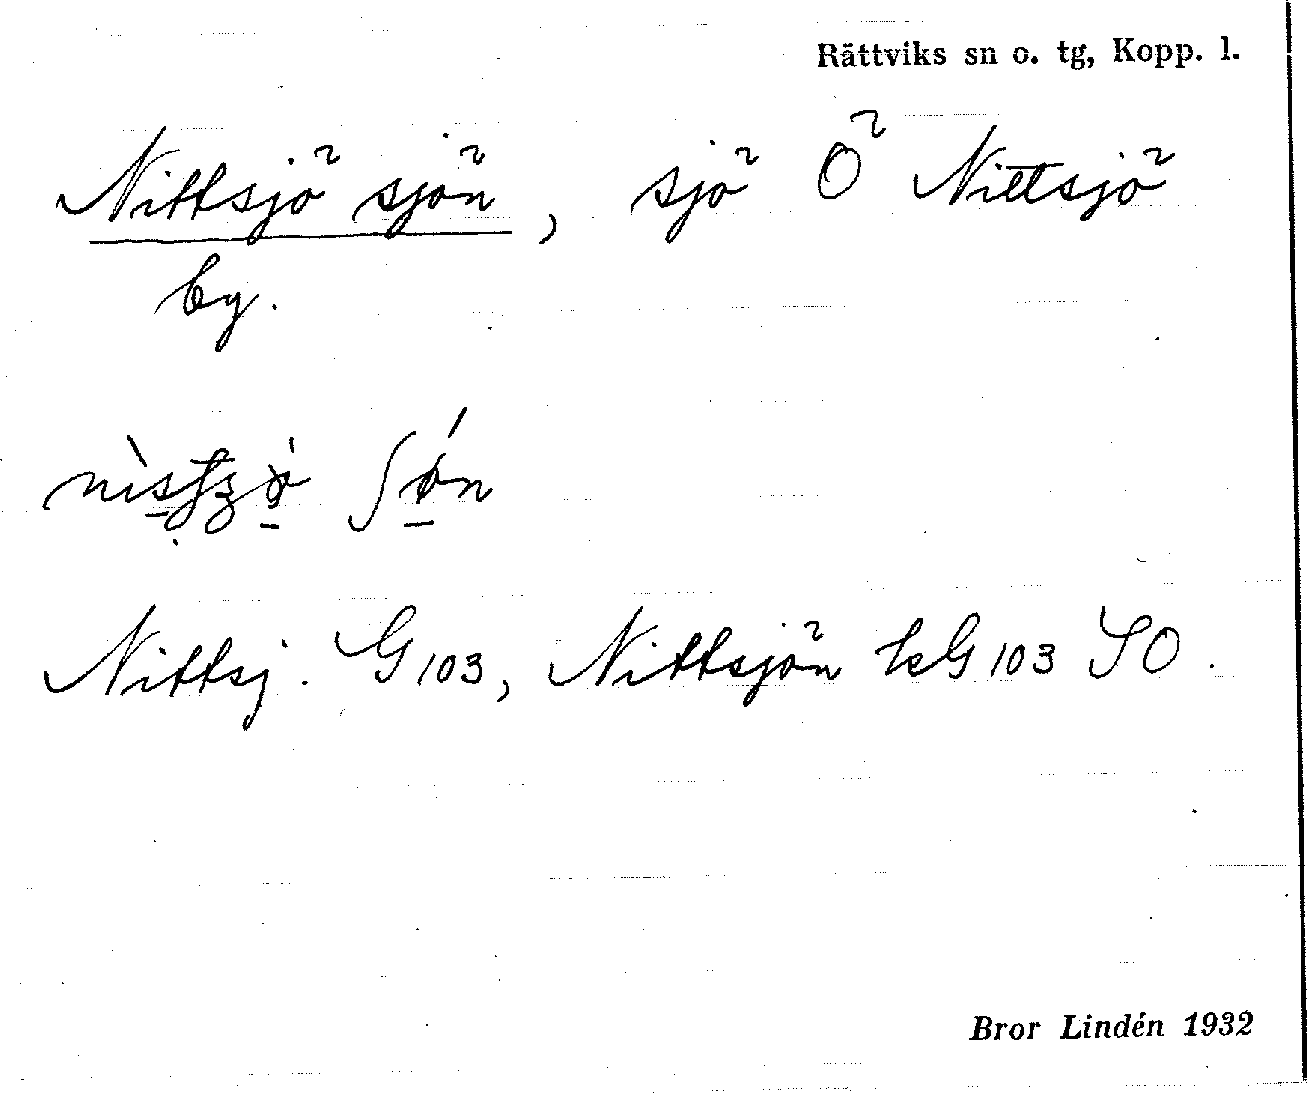 Rättviks sn o. tg, Kopp. l.
Nittsjö sjön, sjö Ö Nittsjö
by.
Nittsj. G 103, Nittsjön kG 103 SO.
Bror Lindén 1932